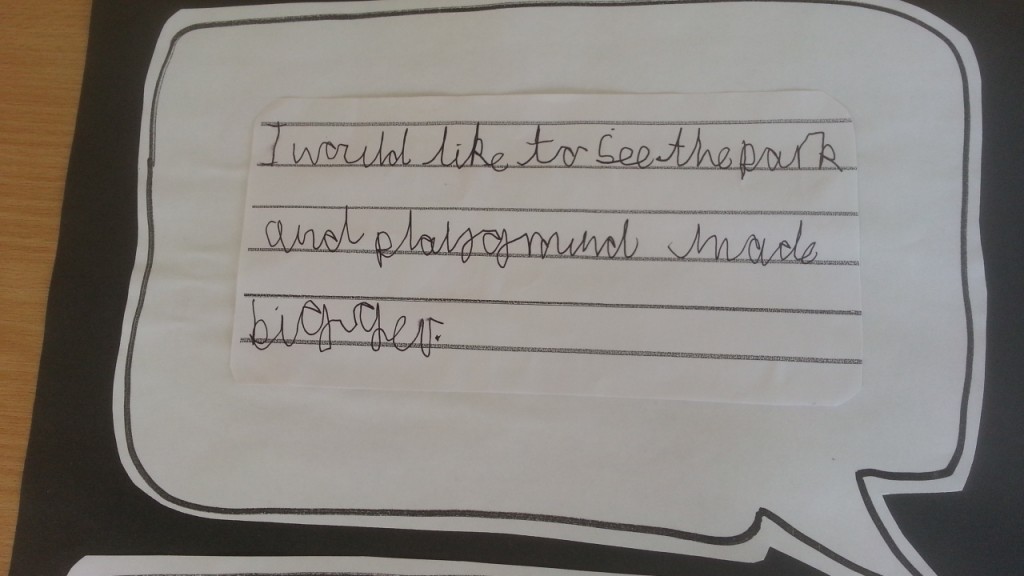 I would like to see the park
and playground made
bigger.